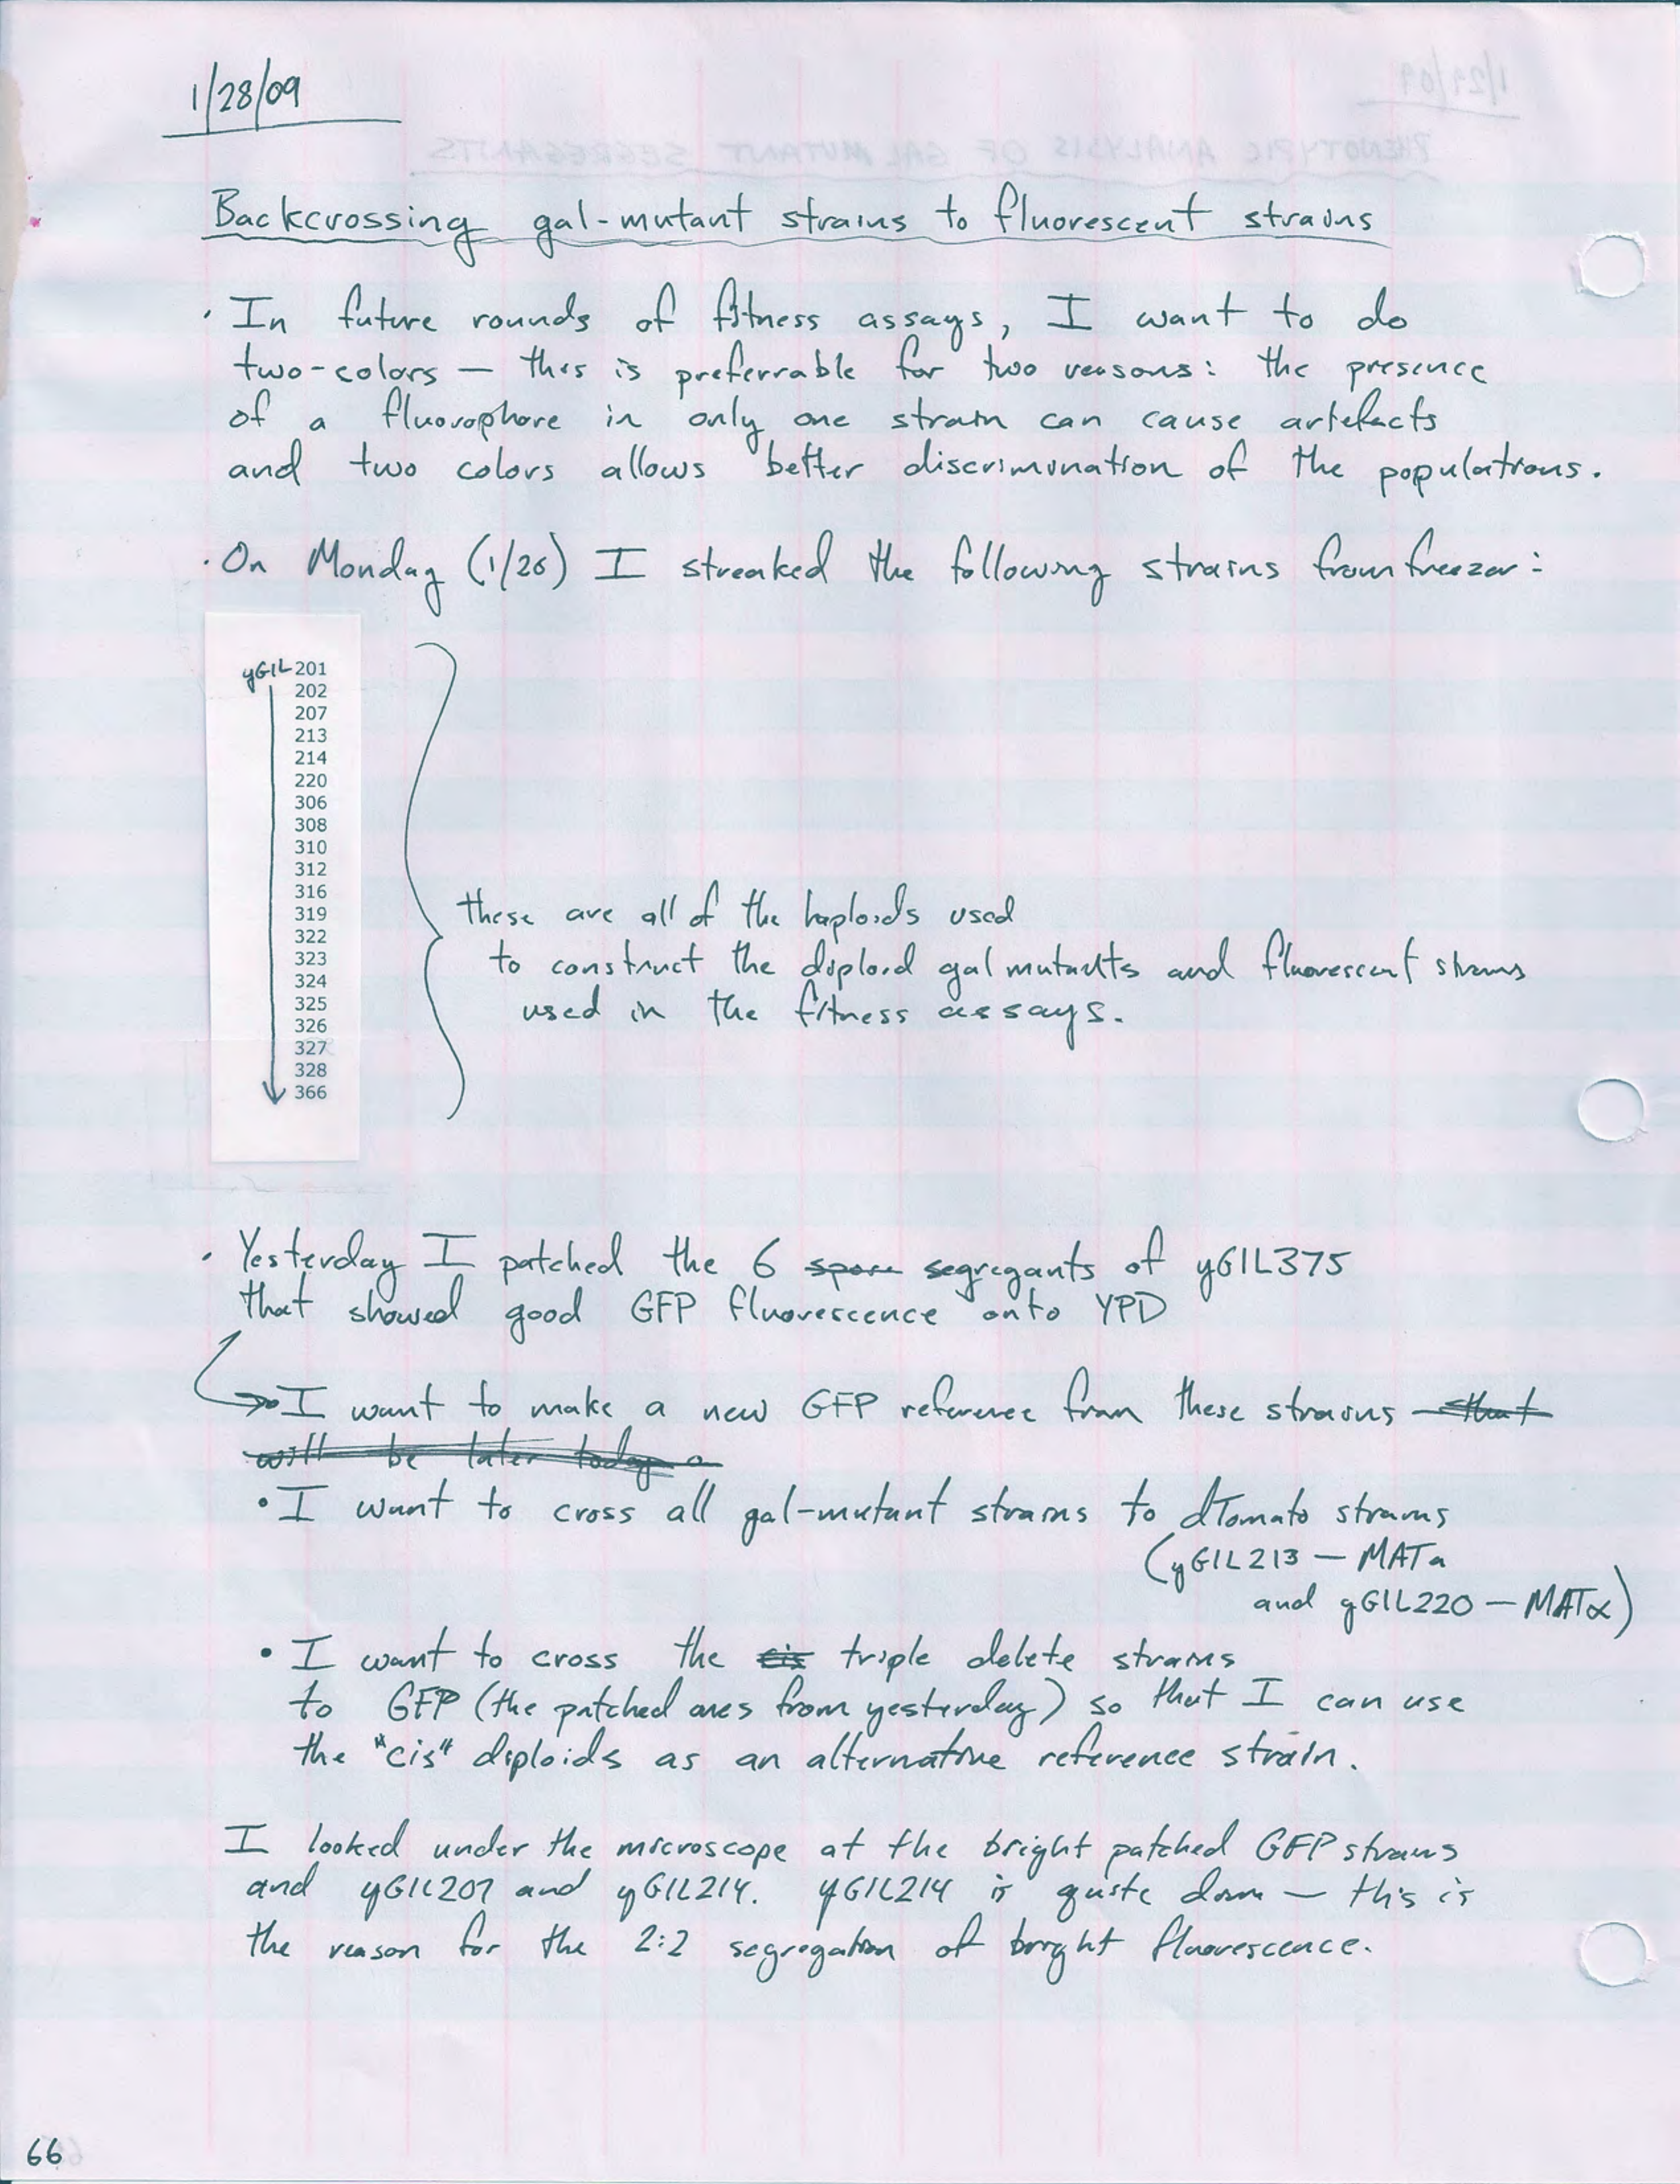 1/28/09
Backcrossing gal-mutant strains to fluorescent strains
· In future rounds of fitness assays, I want to do
two-colors — this is preferrable for two reasons: the presence
of a fluorophore in only one strain can cause artefacts
and two colors allows better discrimination of the populations.
· On Monday (1/26) I streaked the following strains from freezer:
yGIL 201
202
207
213
214
220
306
308
310
312
316
319
322
323
324
325
326
327
328
366
these are all of the haploids used
to construct the diploid gal mutants and fluorescent strains
used in the fitness assays.
· Yesterday I patched the 6 spore segregants of yGIL375
that showed good GFP fluorescence onto YPD
→ I want to make a new GFP reference from these strains — that
will be later today
• I want to cross all gal-mutant strains to dTomato strains
(yGIL213 — MATa
and yGIL220 — MATα)
• I want to cross the cis triple delete strains
to GFP (the patched ones from yesterday) so that I can use
the "cis" diploids as an alternative reference strain.
I looked under the microscope at the bright patched GFP strains
and yGIL207 and yGIL214. yGIL214 is quite dim — this is
the reason for the 2:2 segregation of bright fluorescence.
66